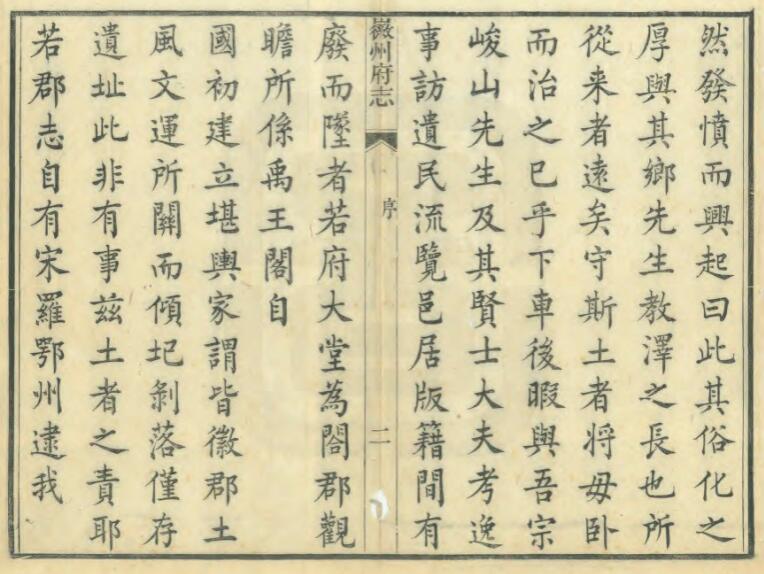 然發憤而興起曰此其俗化之
厚與其鄉先生教澤之長也所
從来者遠矣守斯土者將毋卧
而治之已乎下車後暇與吾宗
峻山先生及其賢士大夫考逸
事訪遺民流覽邑居版籍間有
徽州府志
序
二
廢而墜者若府大堂為閤郡觀
瞻所係禹王閣自
國初建立堪輿家謂皆徽郡土
風文運所關而傾圮剝落僅存
遺址此非有事茲土者之責耶
若郡志自有宋羅鄂州逮我